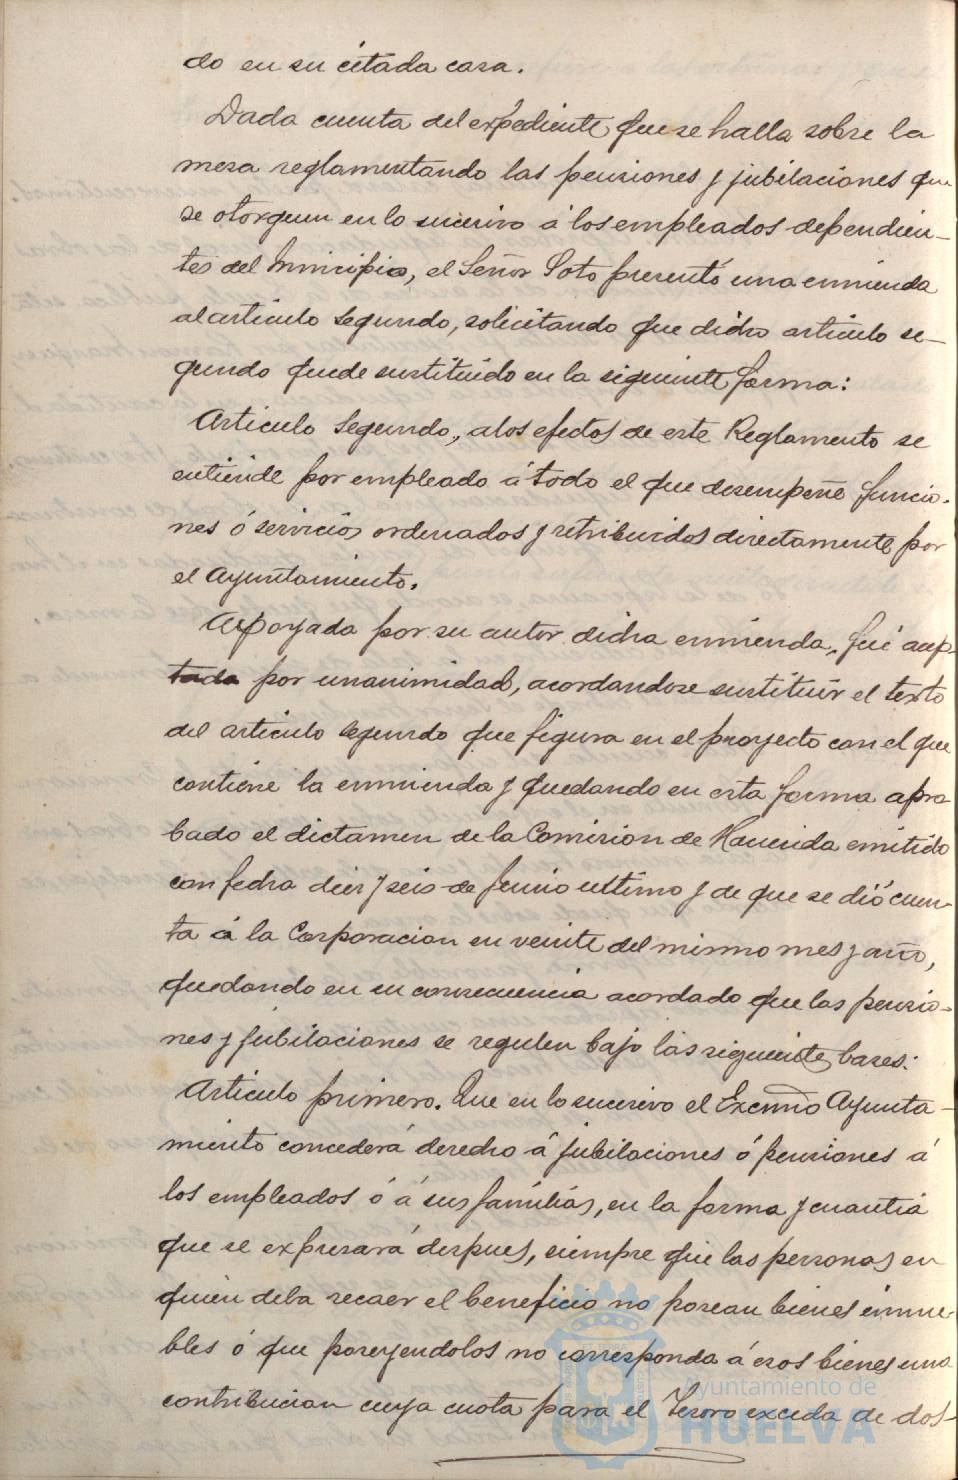 do en su citada casa.
Dada cuenta del expediente que se halla sobre la
mesa reglamentando las pensiones y jubilaciones que
se otorguen en lo sucesivo á los empleados dependien-
tes del Municipio, el Señor Soto presentó una enmienda
al articulo segundo, solicitando que dicho articulo se-
gundo quede sustituido en la siguiente forma:
Articulo Segundo, a los efectos de este Reglamento se
entiende por empleado á todo el que desempeñe funcio-
nes ó servicios ordenados y retribuidos directamente por
el Ayuntamiento.
Apoyada por su autor dicha enmienda, fué acep-
tada por unanimidad, acordandose sustituir el texto
del articulo segundo que figura en el proyecto con el que
contiene la enmienda y quedando en esta forma apro
bado el dictamen de la Comision de Hacienda emitido
con fecha diez y seis de Junio ultimo y de que se dió cuen-
ta á la Corporacion en veinte del mismo mes y año,
quedando en su consecuencia acordado que las pensio-
nes y jubilaciones se regulen bajo las siguiente bases:
Articulo primero. Que en lo sucesivo el Excmo Ayunta-
miento concederá derecho á jubilaciones ó pensiones á
los empleados ó á sus familias, en la forma y cuantia
que se expresará despues, siempre que las personas en
quien deba recaer el beneficio no posean bienes inmue-
bles ó que poseyendolos no corresponda á esos bienes una
contribucion cuya cuota para el Tesoro exceda de dos-
Ayuntamiento de
HUELVA